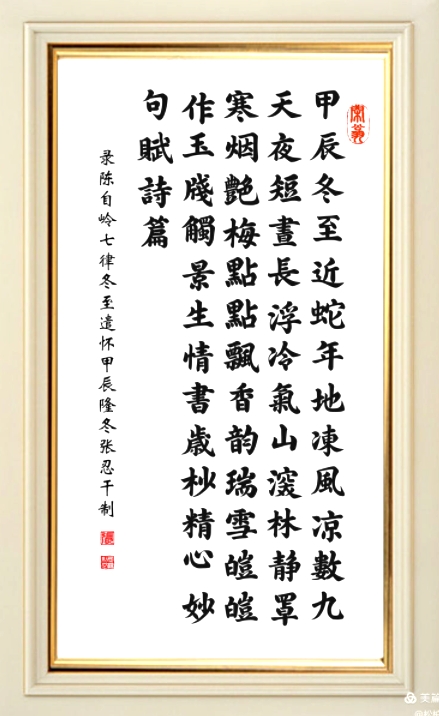 甲辰冬至近蛇年地凍風凉數九
天夜短晝長浮冷氣山深林静罩
寒烟艷梅點點飄香韵瑞雪皚皚
作玉牋觸景生情書歲杪精心妙
句賦詩篇
录陈自岭七律冬至遣怀甲辰隆冬张忍干制
美篇